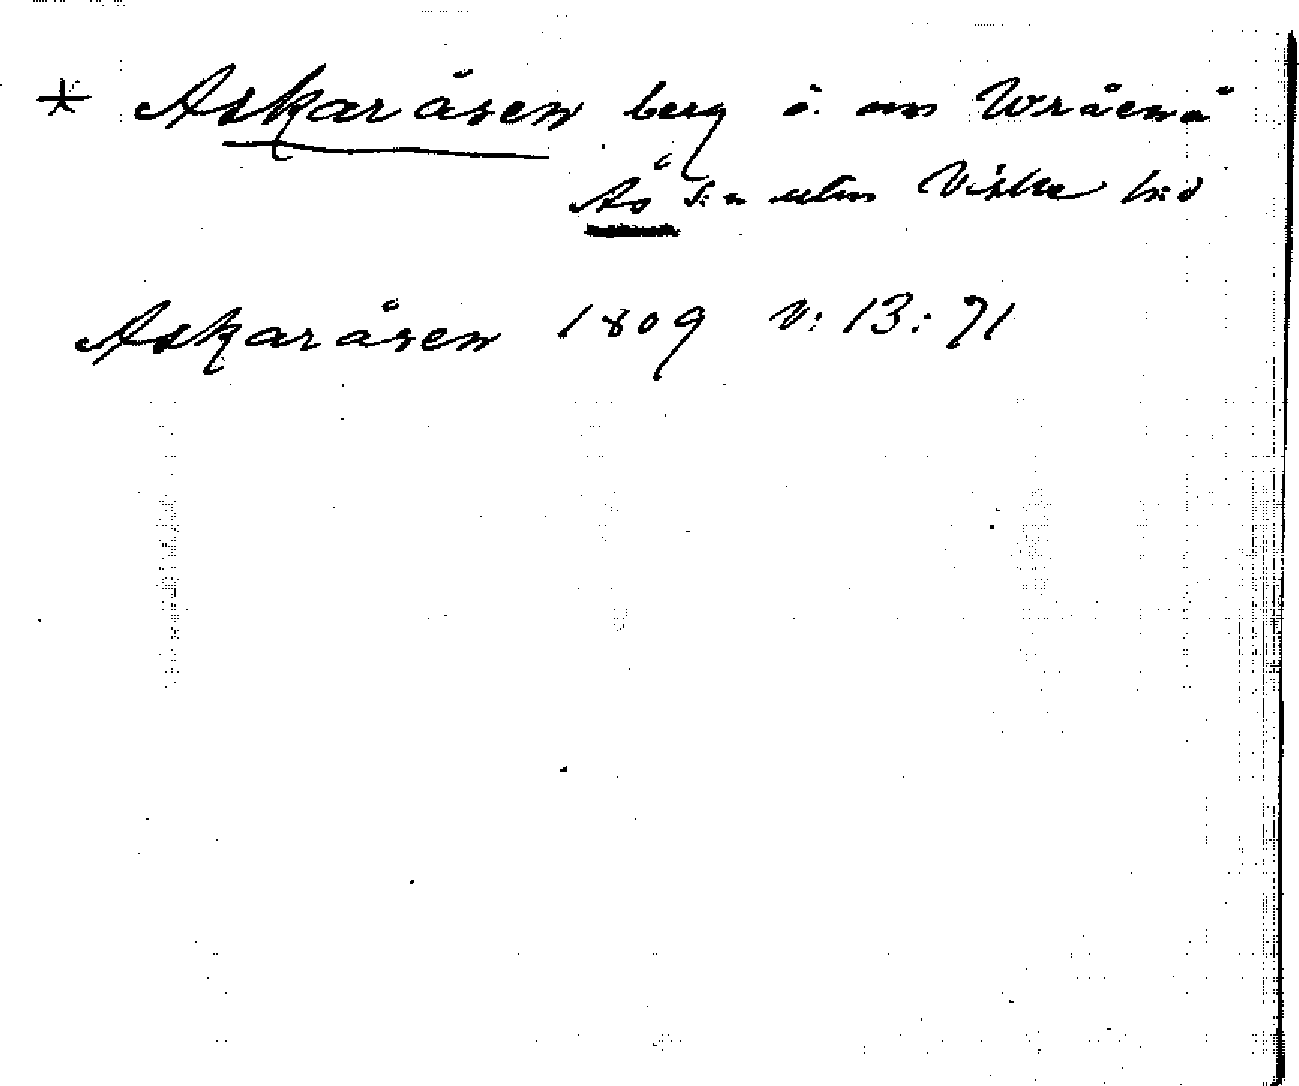 * Askaråsen berg ö. om Wråenå
Ås s:n Viske h:d
Askaråsen 1809 V: 13: 71